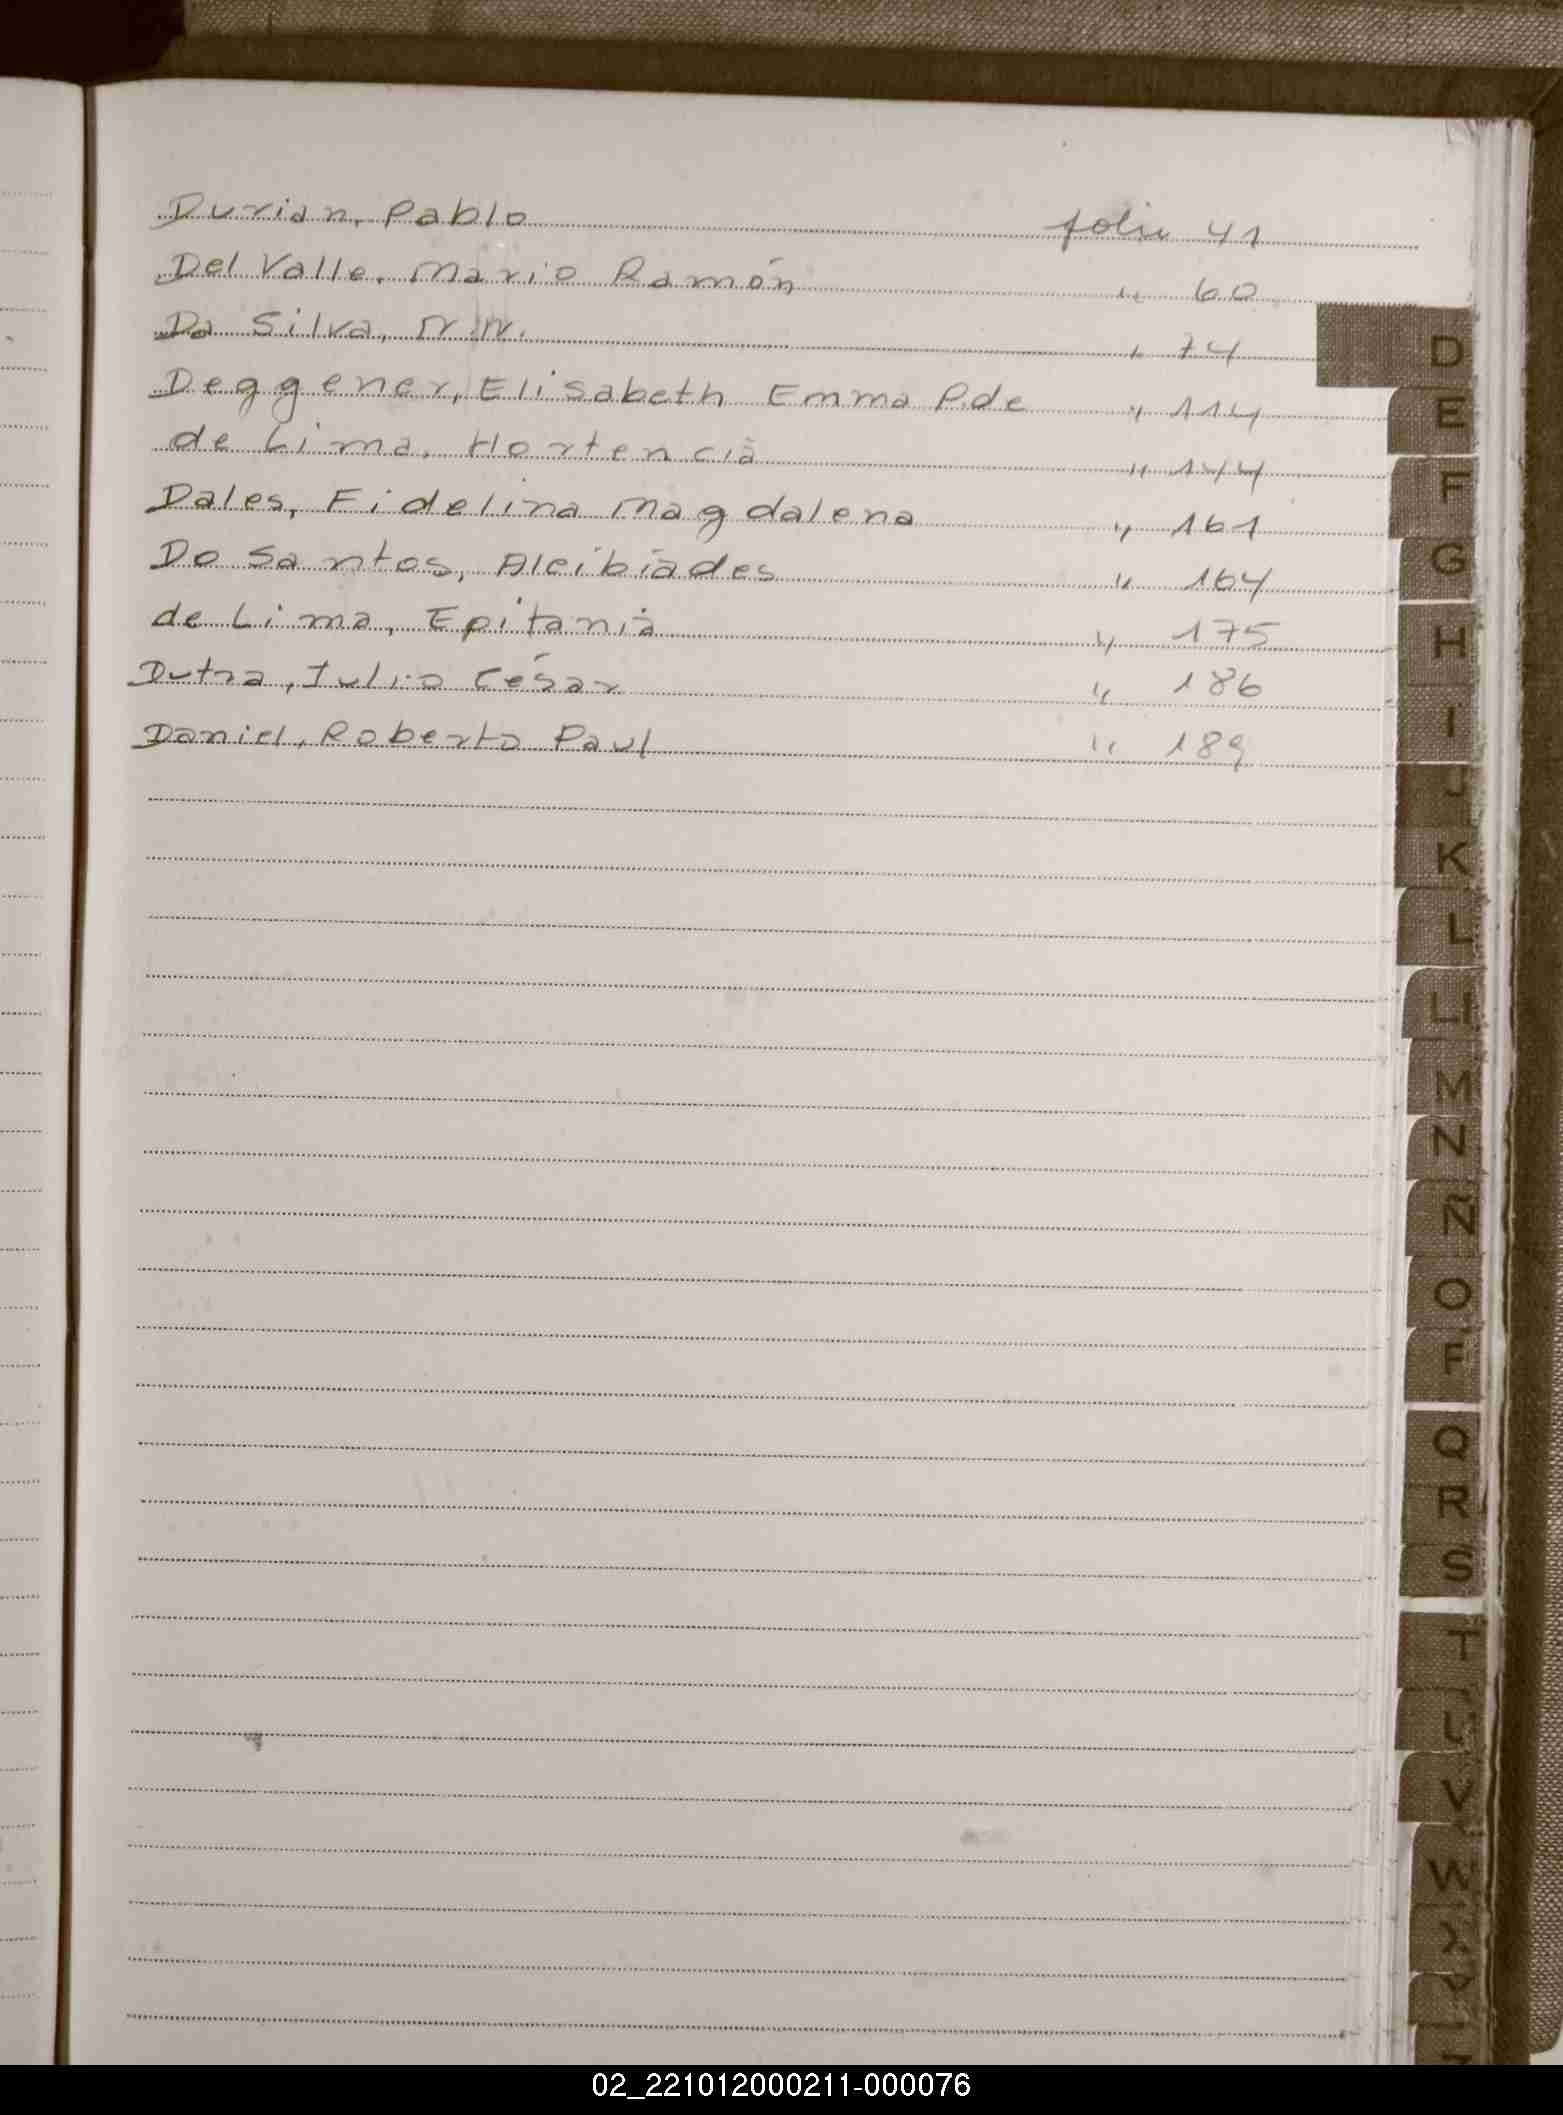 Durian, Pablo folio 41
Del Valle, Mario Ramón " 60
Da Silva, N.N. " 74
Deggener, Elisabeth Emma P. de " 114
de Lima, Hortencia " 144
Dales, Fidelina Magdalena " 161
Do Santos, Alcibiades " 164
de Lima, Epitania " 175
Dutra, Julio César " 186
Daniel, Roberto Paul " 189
D
E
F
G
H
I
J
K
L
Ll
M
N
Ñ
O
P
Q
R
S
T
U
V
W
X
Y
Z
02_221012000211-000076